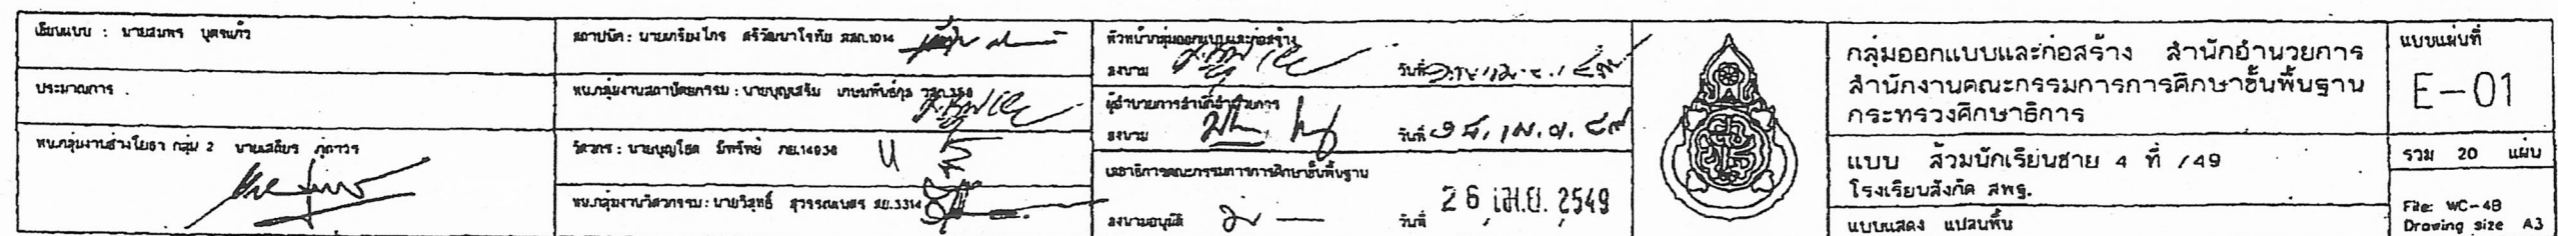 เขียนแบบ : นายสมพร บุตรแก้ว
ประมาณการ .
หน.กลุ่มงานช่างโยธา กลุ่ม 2 นายเสถียร ภูถาวร
สถาปนิก : นายเกรียงไกร ศรีวัฒนาโรทัย สสถ.1014
หน.กลุ่มงานสถาปัตยกรรม : นายบุญเสริม เกษมทันธ์กุล วสถ.358
วิศวกร : นายบุญโชค ภย.14936
หน.กลุ่มงานวิศวกรรม : นายวิสุทธิ์ สุวรรณเนตร สย.3314
หัวหน้ากลุ่มออกแบบและก่อสร้าง
ลงนาม วันที่
ผู้อำนวยการสำนักอำนวยการ
ลงนาม วันที่ ๑๕, เม.ย. ๔๙
เลขาธิการคณะกรรมการการศึกษาขั้นพื้นฐาน
ลงนามอนุมัติ วันที่ 26 เม.ย. 2549
กลุ่มออกแบบและก่อสร้าง สำนักอำนวยการ
สำนักงานคณะกรรมการการศึกษาขั้นพื้นฐาน
กระทรวงศึกษาธิการ
แบบ ส้วมนักเรียนชาย 4 ที่ /49
โรงเรียนสังกัด สพฐ.
แบบแสดง แปลนพื้น
แบบแผ่นที่
E-01
รวม 20 แผ่น
File: WC-4B
Drawing size A3